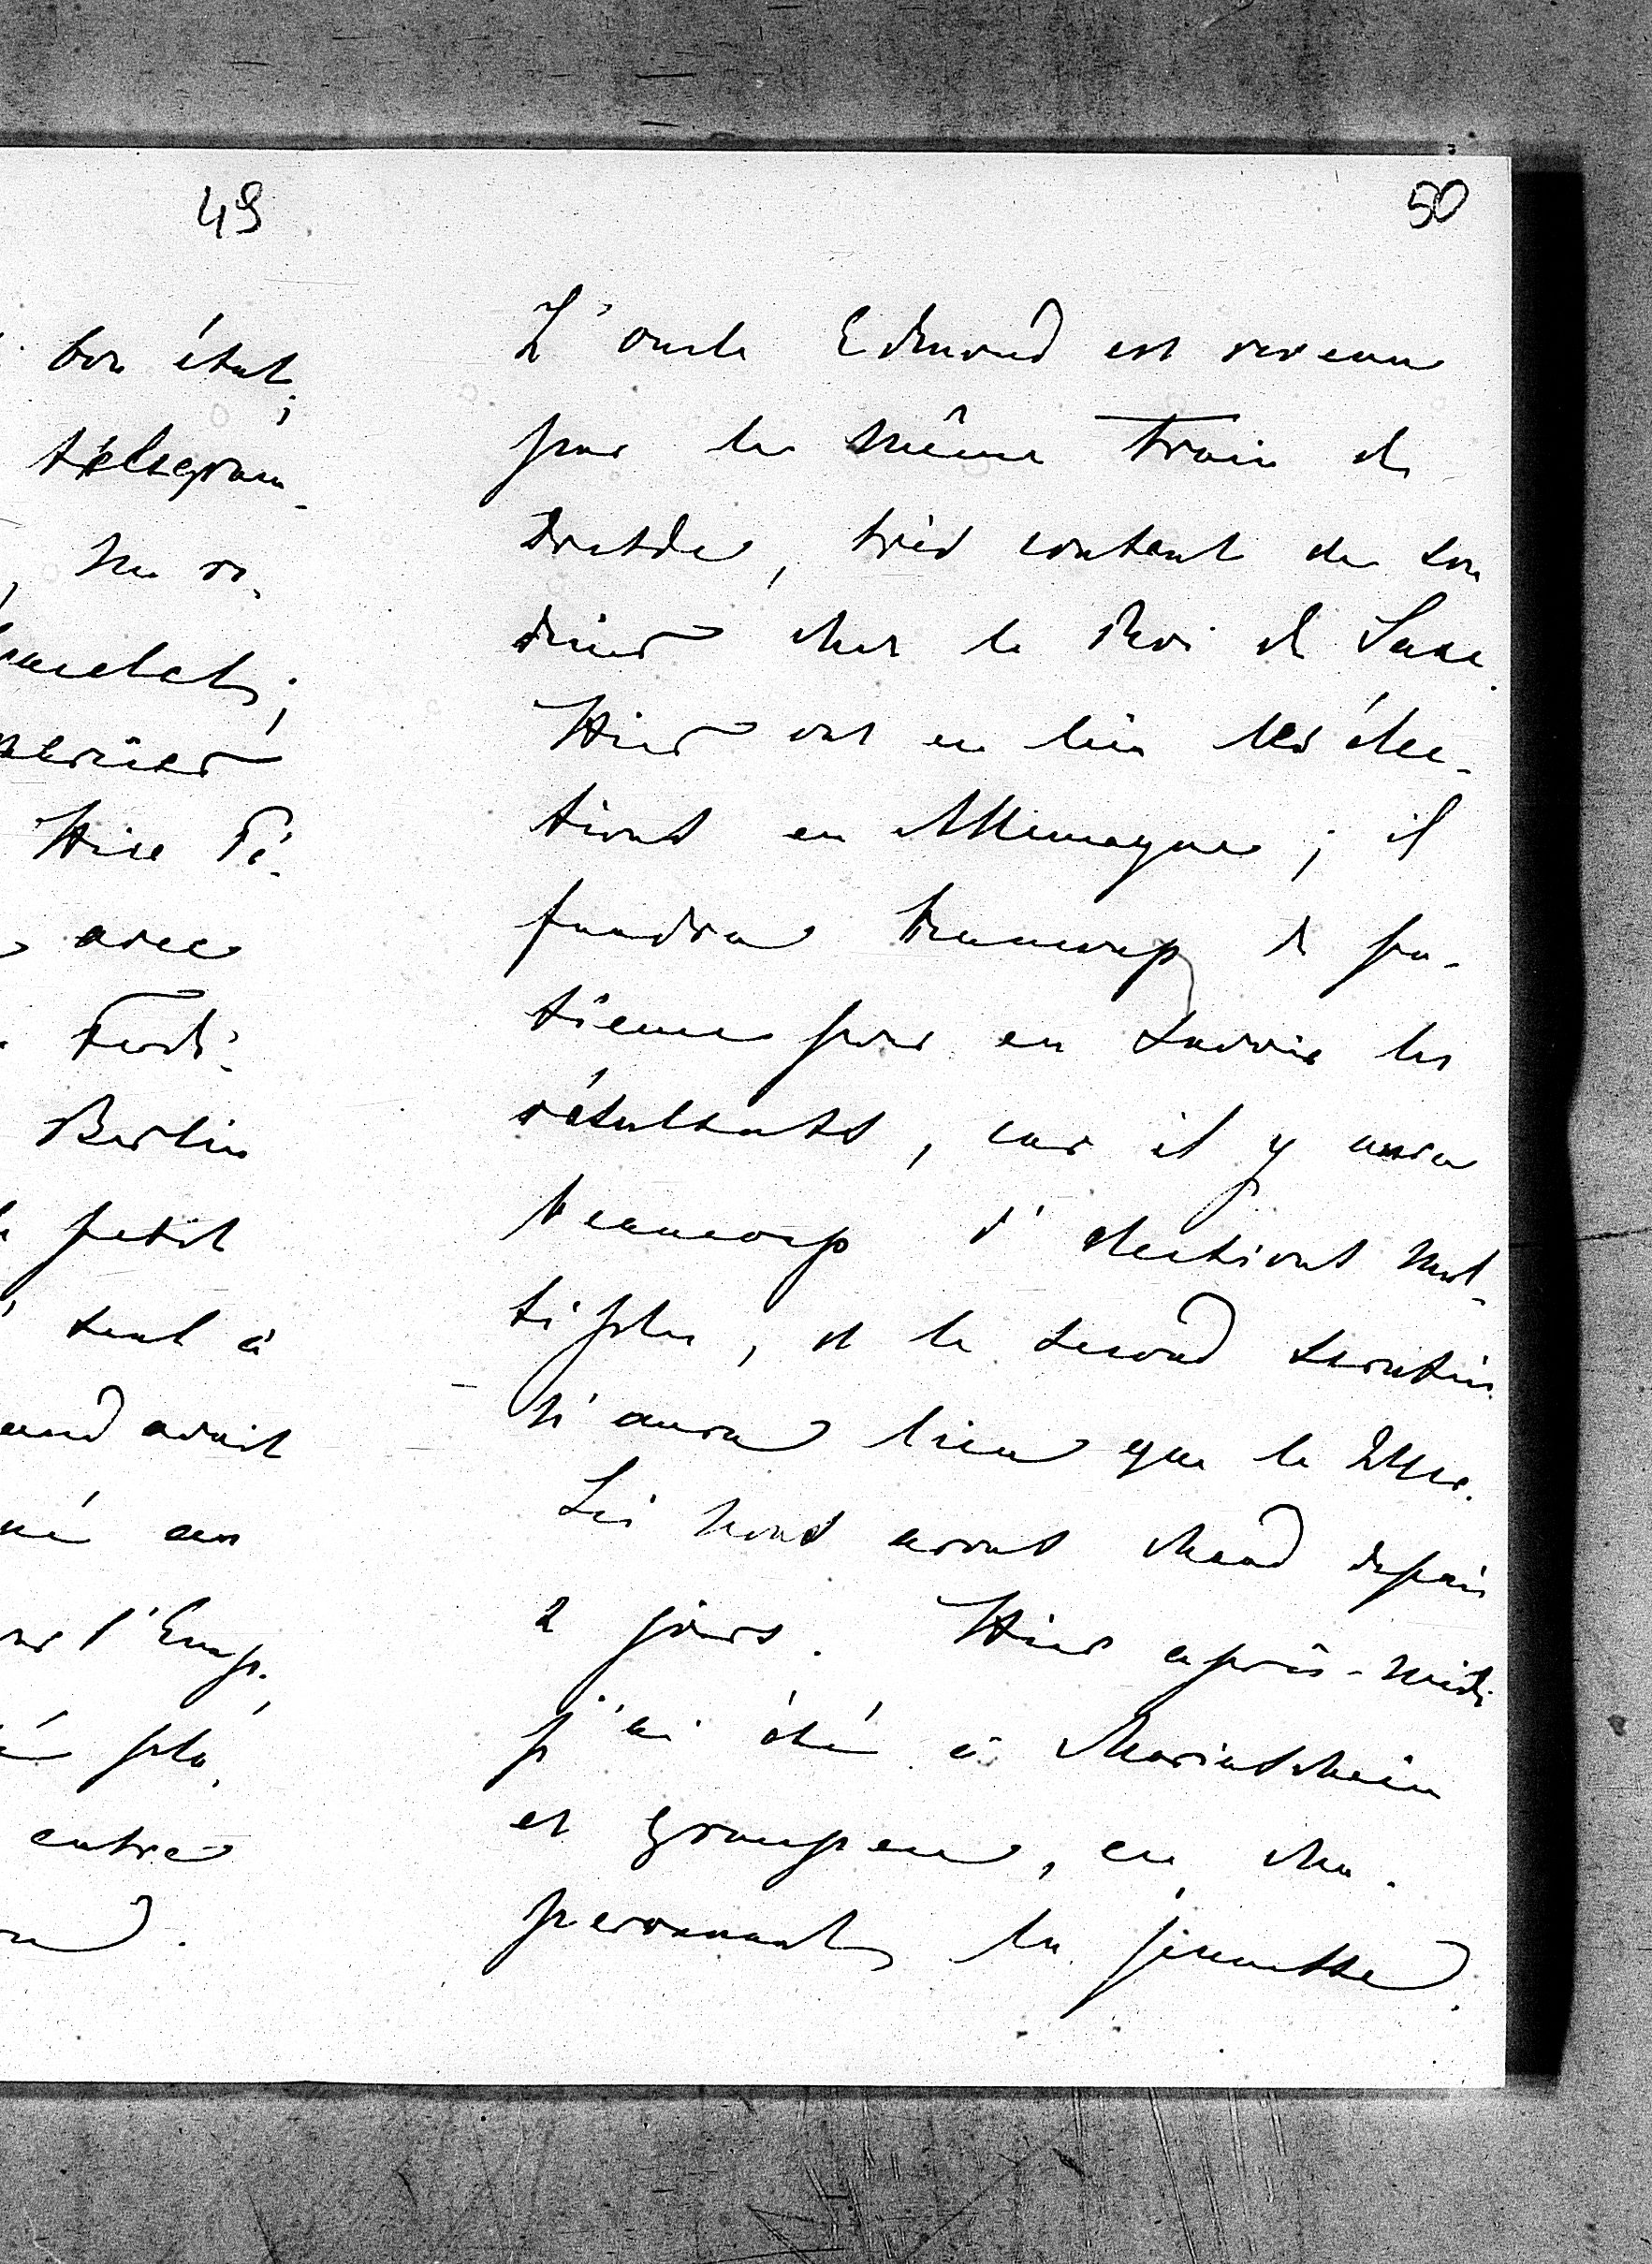 49
bon état;
télégram-
, me ro-
Hier Fé-
avec
Ferdi-
Berlin
petit
seul à
avait
né au
l'Emp.
pla-
entre
50
L'oncle Edmond est revenu
par le même train de
Dresde, très content de son
diner chez le Roi de Saxe.
Hier ont eu lieu les élec-
tions en Allemagne; il
faudra beaucoup de pa-
tience pour en savoir les
résultats, car il y aura
beaucoup d'élections mul-
tiples, et le second scrutin
n'aura lieu que le 24er.
Ici nous avons chaud depuis
2 jours. Hier après-midi
j'ai été à Mariaschein
et Graupen, en cha-
peronnant la jeunesse.